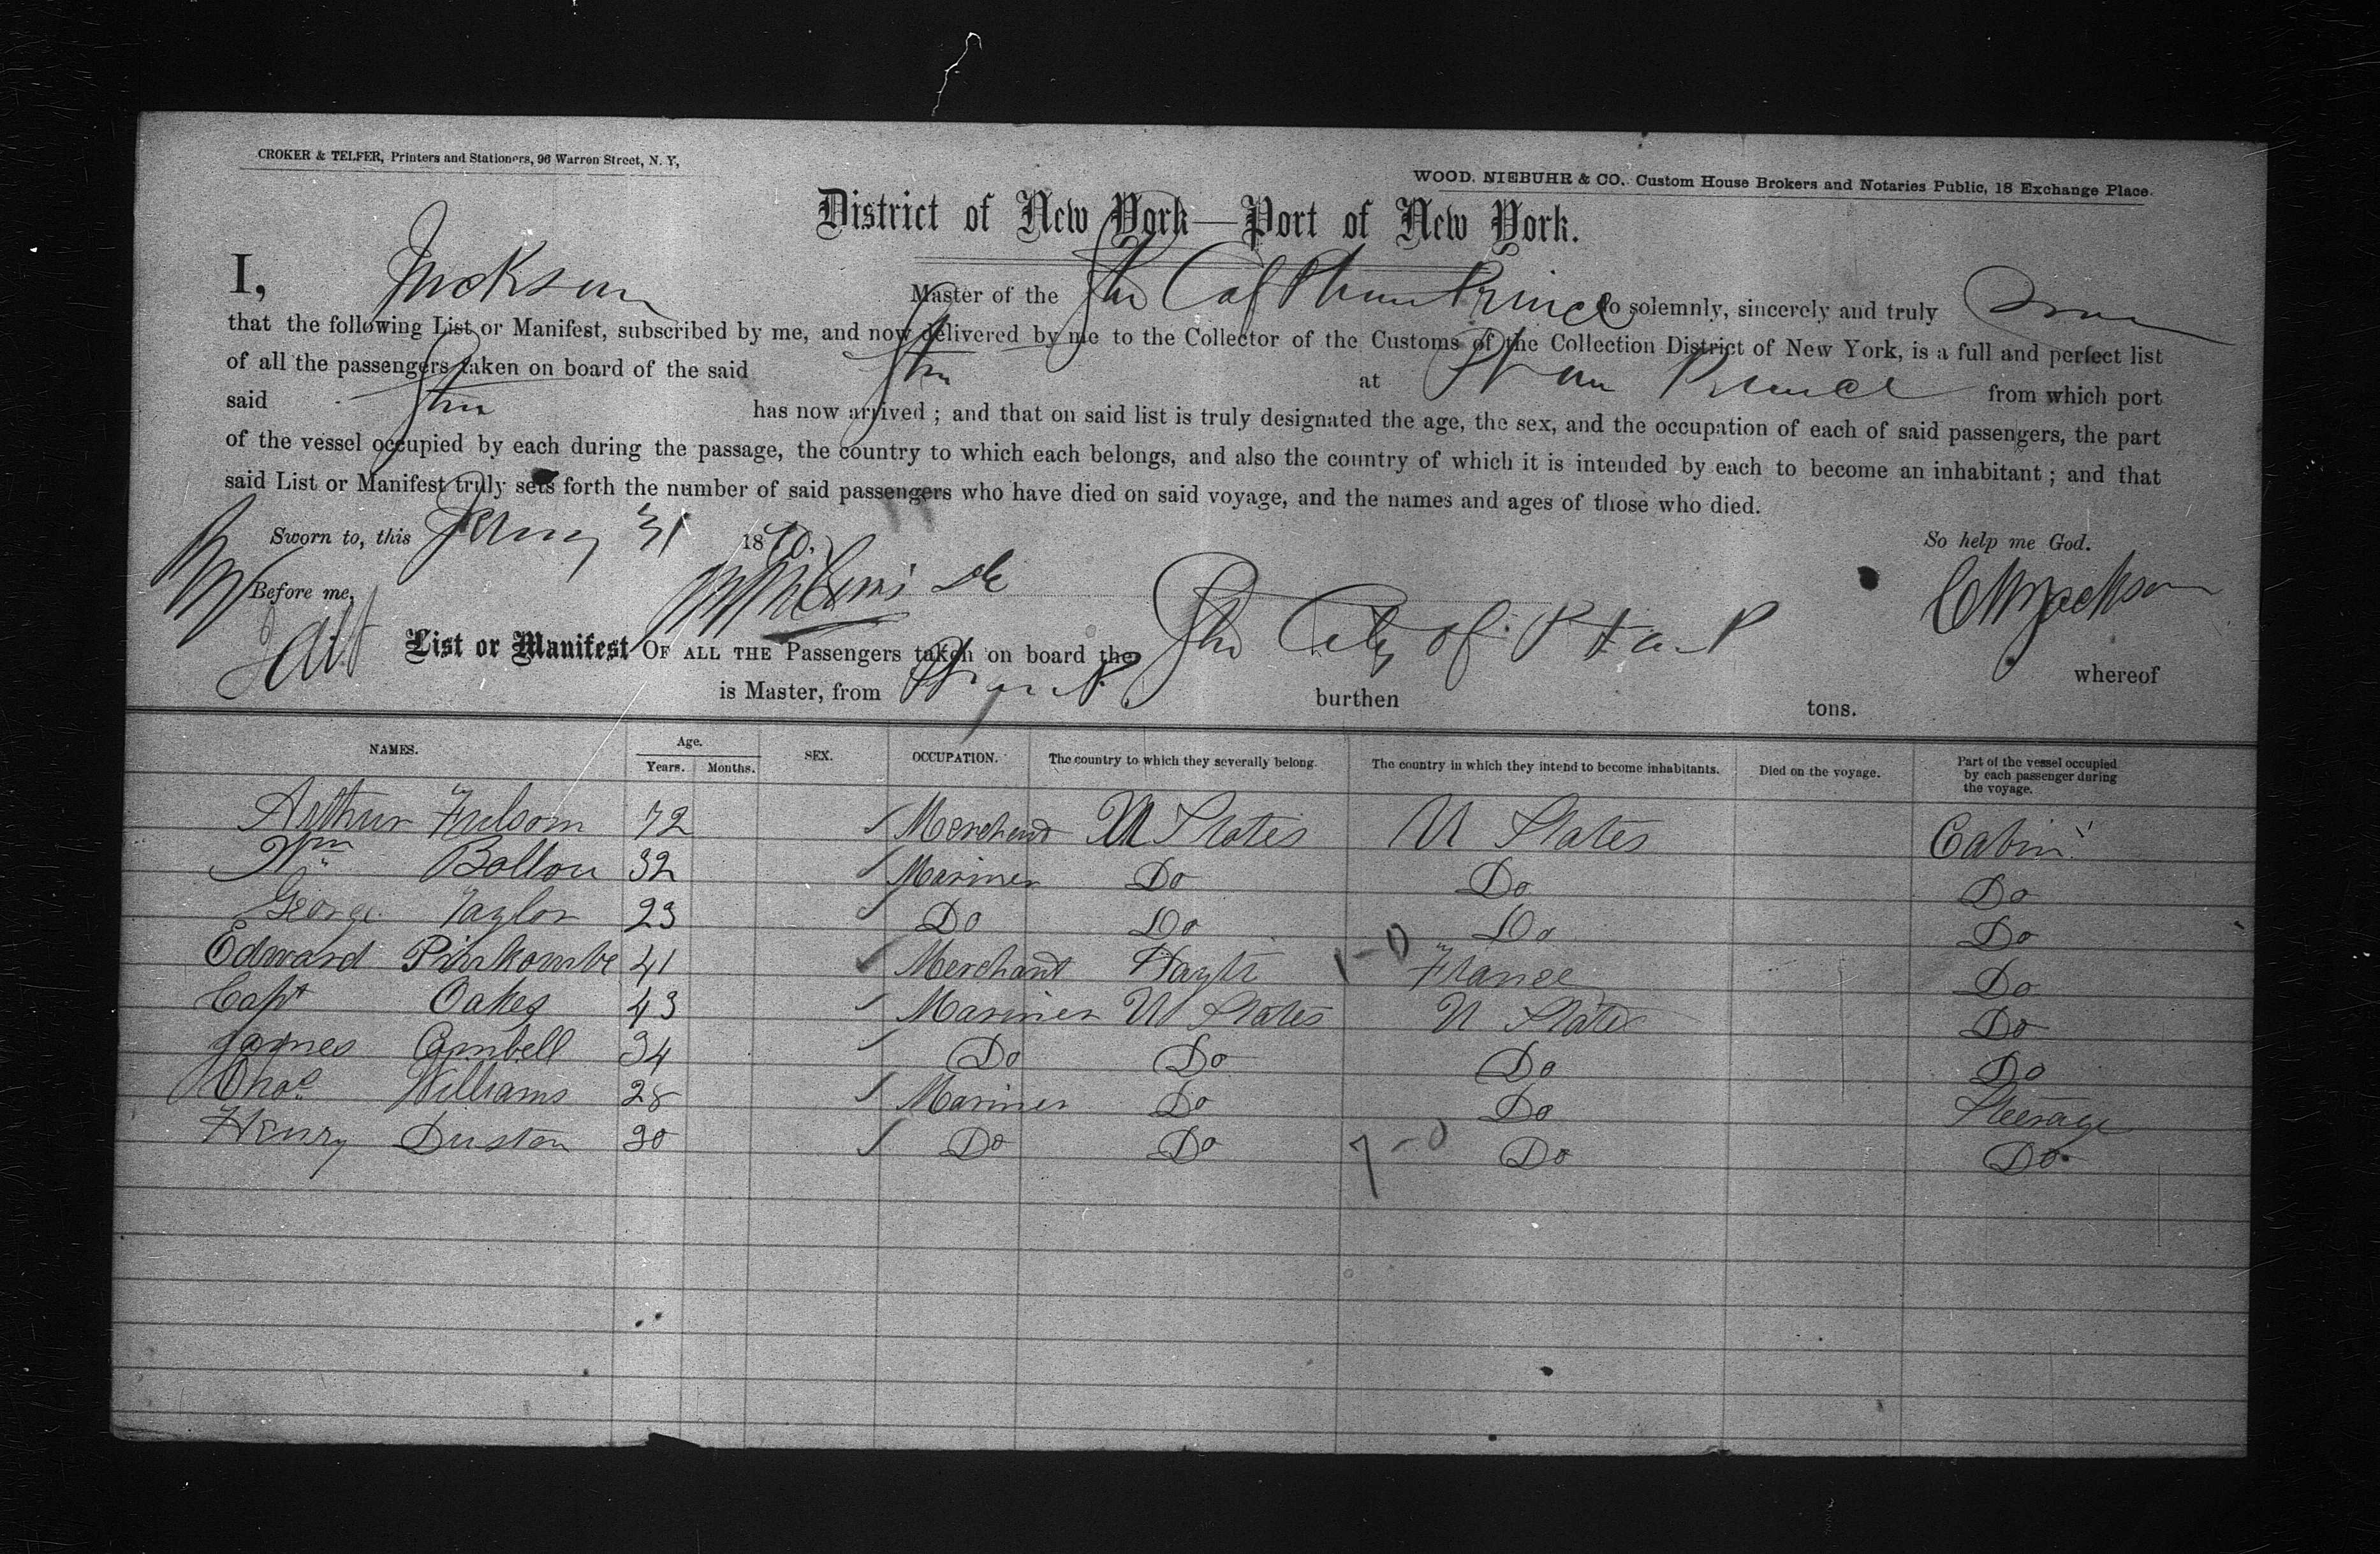 CROKER & TELFER, Printers and Stationers, 96 Warren Street, N. Y,
WOOD, NIEBUHR & CO. Custom House Brokers and Notaries Public, 18 Exchange Place.
District of New York—Port of New York.
I, Jackson Master of the Prince do solemnly, sincerely and truly
that the following List or Manifest, subscribed by me, and now delivered by me to the Collector of the Customs of the Collection District of New York, is a full and perfect list
of all the passengers taken on board of the said Str at Prince from which port
said Str has now arrived ; and that on said list is truly designated the age, the sex, and the occupation of each of said passengers, the part
of the vessel occupied by each during the passage, the country to which each belongs, and also the country of which it is intended by each to become an inhabitant ; and that
said List or Manifest truly sets forth the number of said passengers who have died on said voyage, and the names and ages of those who died.
Sworn to, this 31 1870. So help me God.
Before me, Jackson
List or Manifest OF ALL THE Passengers taken on board the City of P au P whereof
is Master, from burthen tons.
NAMES. Age. Years. Months. SEX. OCCUPATION. The country to which they severally belong. The country in which they intend to become inhabitants. Died on the voyage. Part of the vessel occupied by each passenger during the voyage.
Arthur Fulsom 72 Merchant U States U States Cabin
Wm Ballou 32 Mariner Do Do Do
George Taylor 23 Do Do Do Do
Edward Pinkombe 41 Merchant Hayti 1-0 France Do
Capt Oakes 43 Mariner U States U States Do
James Cambell 34 Do Do Do Do
Thos Williams 28 Mariner Do Do Steerage
Henry Duston 30 Do Do 7-0 Do Do